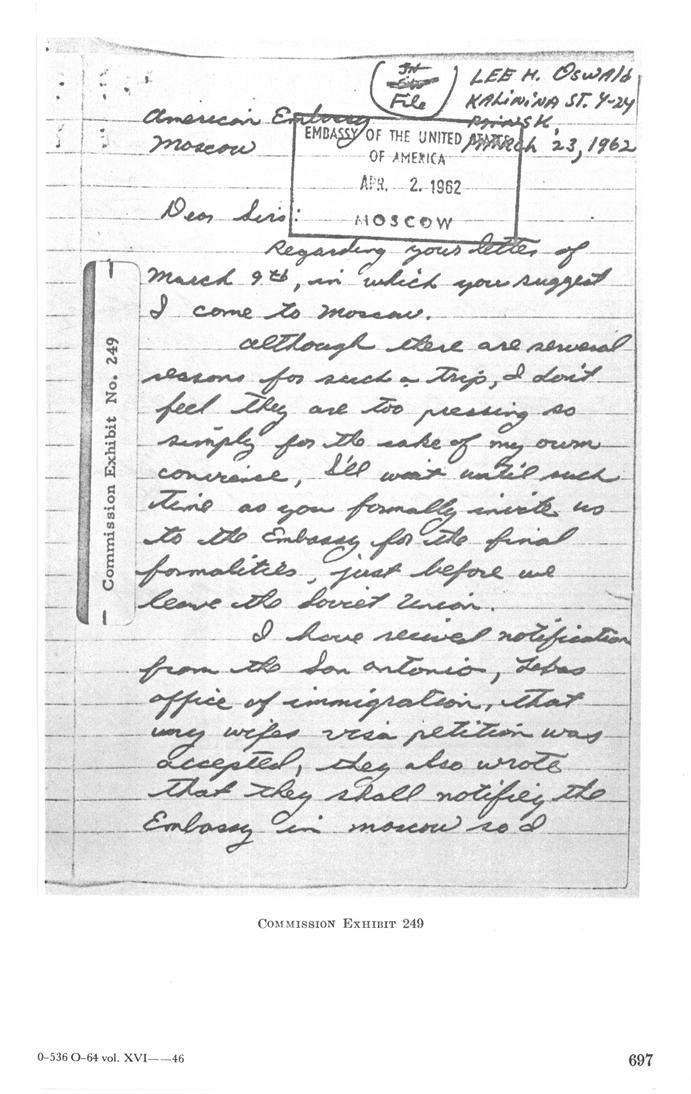 In
File
LEE H. OSWALD
KALININA ST. 4-24
MINSK,
MARCH 23, 1962
American Embassy
Moscow
EMBASSY OF THE UNITED STATES
OF AMERICA
APR. 2. 1962
MOSCOW
Dear Sirs:
Regarding your letter of
March 9th, in which you suggest
I come to Moscow.
Although there are serveral
reasons for such a trip, I don't
feel they are too pressing so
simply for the sake of my own
convience, I'll wait until such
time as you formally invite us
to the Embassy for the final
formalities, just before we
leave the Soviet Union.
I have recived notification
from the San Antonio, Texas
office of immigration, that
my wifes visa petition was
accepted, they also wrote
that they shall notifiy the
Embassy in Moscow so I
Commission Exhibit No. 249
COMMISSION EXHIBIT 249
0-536 O-64 vol. XVI——46
697